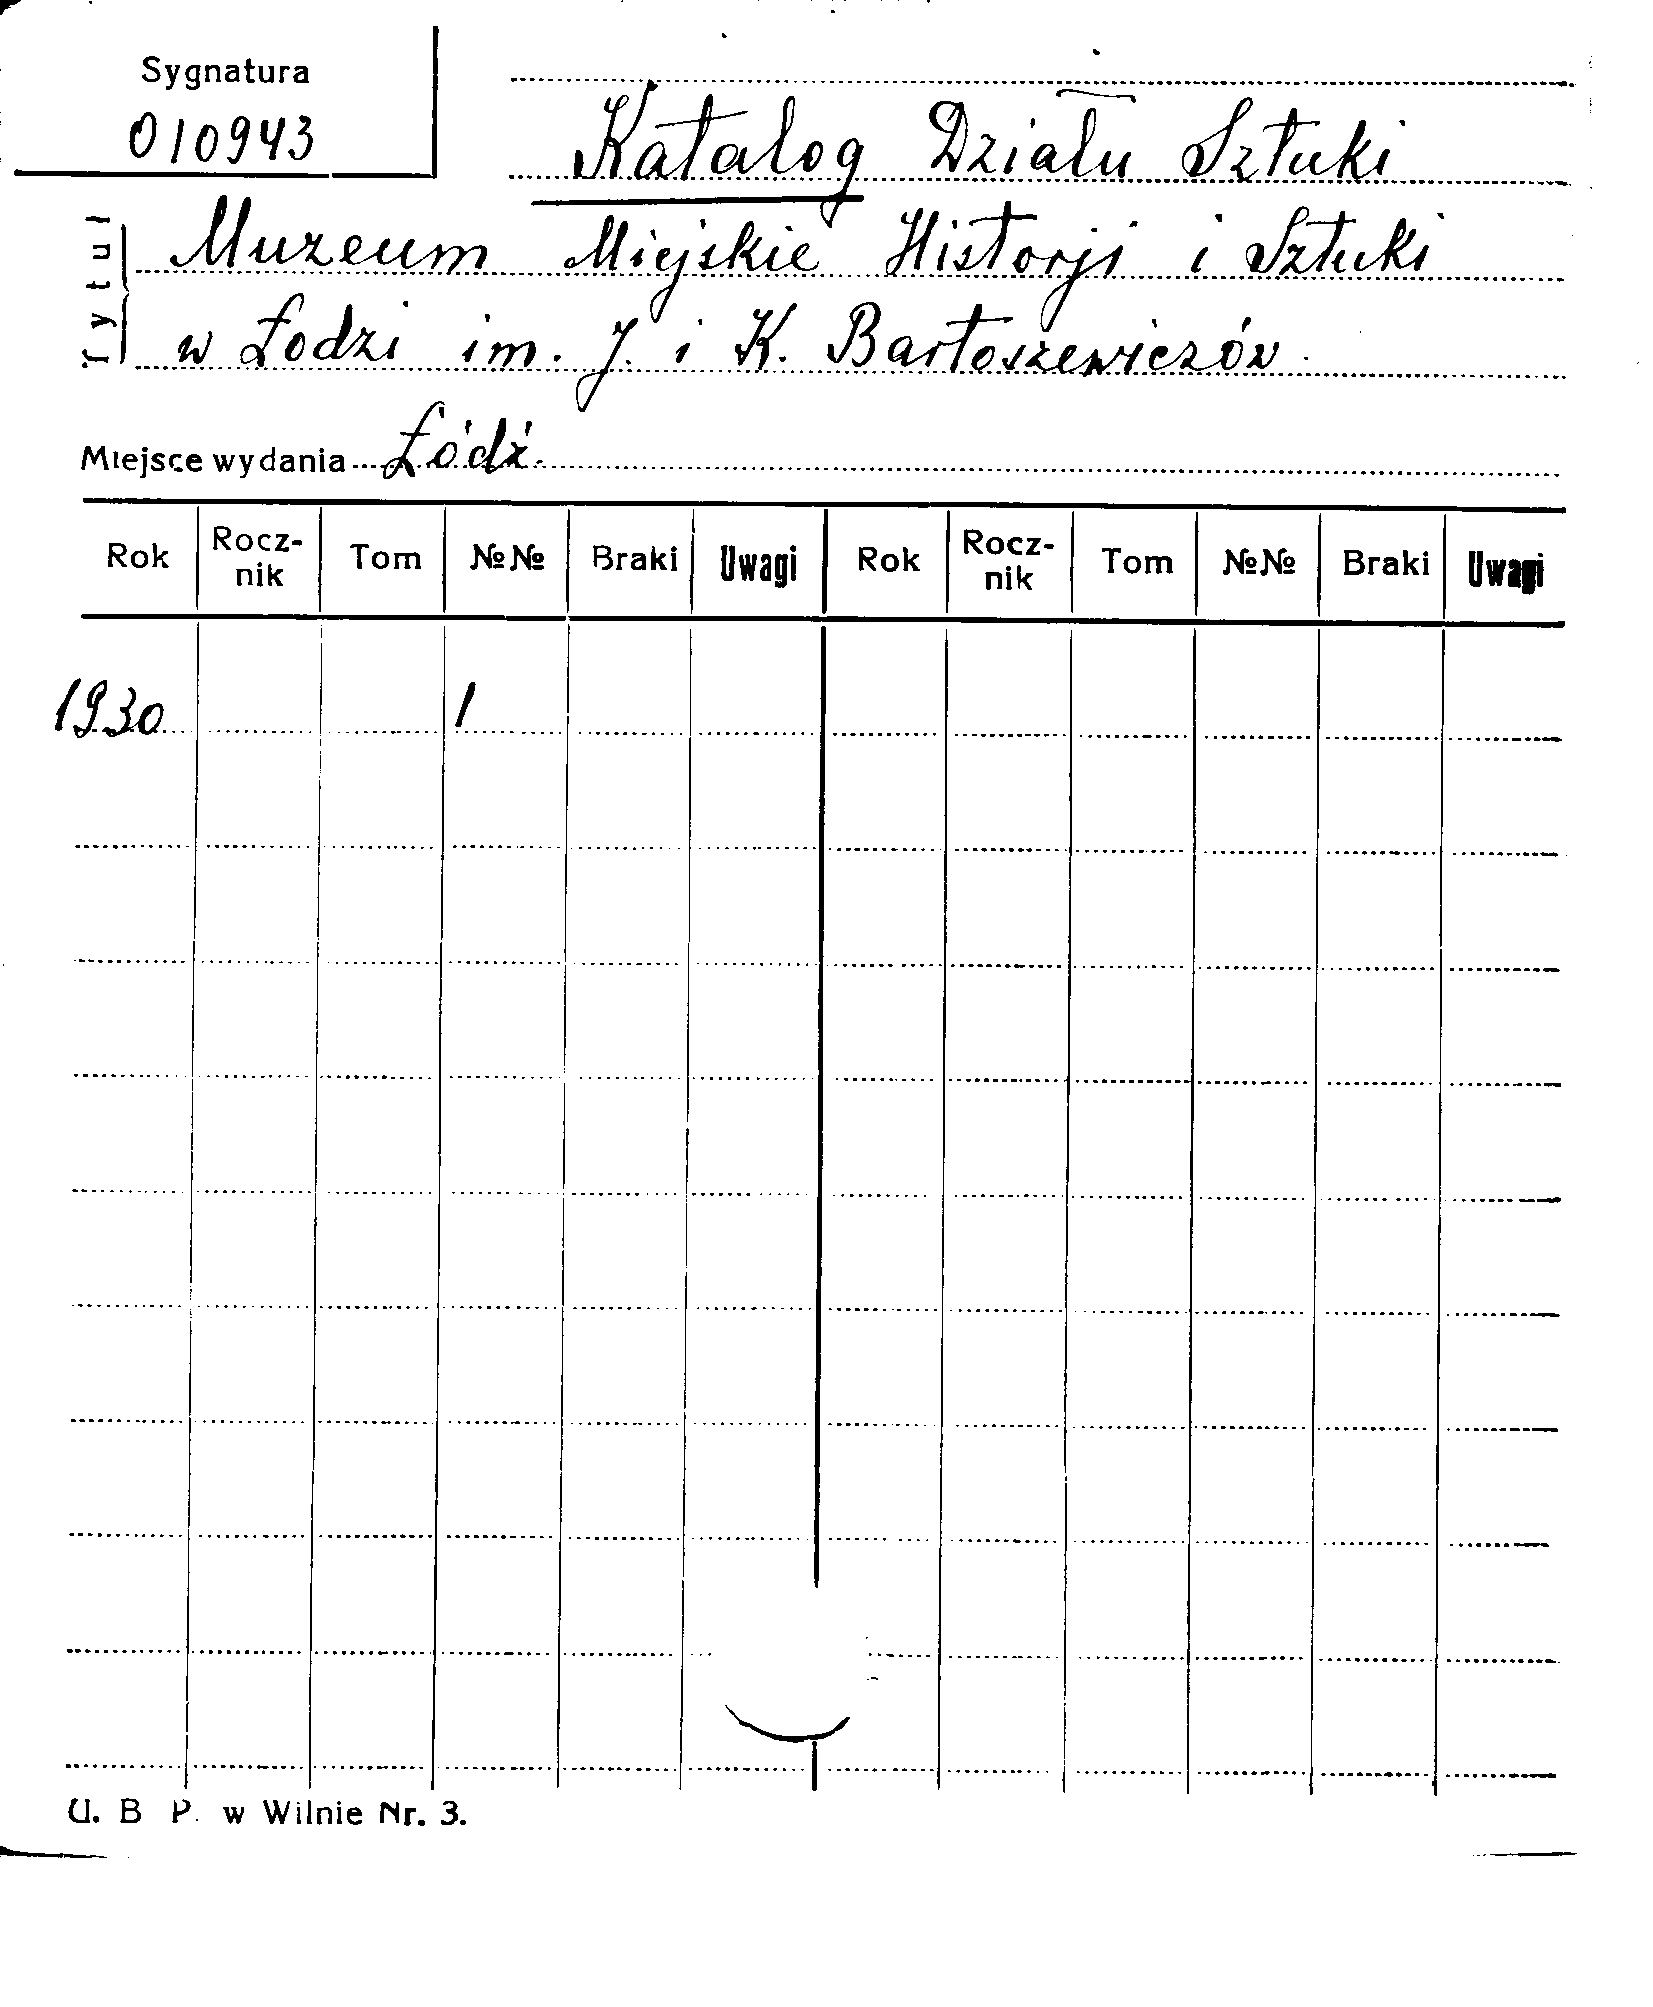 Sygnatura
010943
Katalog Działu Sztuki
Tytuł
Muzeum Miejskie Historji i Sztuki
w Łodzi im. J. i K. Bartoszewiczów.
Miejsce wydania Łódź.
Rok Rocz-nik Tom №№ Braki Uwagi Rok Rocz-nik Tom №№ Braki Uwagi
1930 1
U. B P. w Wilnie Nr. 3.